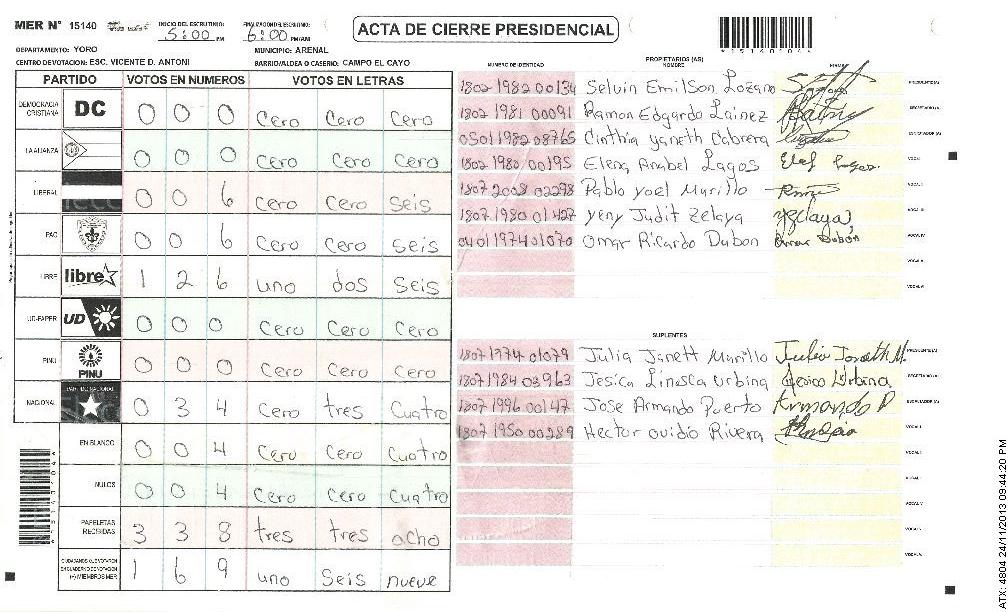 MER N° 15140 INICIO DEL ESCRUTINIO: 5:00 PM FINALIZACION DEL ESCRUTINIO: 6:00 PM/AM ACTA DE CIERRE PRESIDENCIAL
DEPARTAMENTO: YORO MUNICIPIO: ARENAL
CENTRO DE VOTACION: ESC. VICENTE D. ANTONI BARRIO/ALDEA O CASERIO: CAMPO EL CAYO
PARTIDO VOTOS EN NUMEROS VOTOS EN LETRAS
DEMOCRACIA CRISTIANA DC 0 0 0 Cero Cero Cero
LA ALIANZA 0 0 0 Cero Cero Cero
LIBERAL 0 0 6 Cero Cero Seis
PAC 0 0 6 Cero Cero Seis
LIBRE libre 1 2 6 uno dos Seis
UD-FAPER UD 0 0 0 Cero Cero Cero
PINU PINU 0 0 0 Cero Cero Cero
NACIONAL PARTIDO NACIONAL 0 3 4 Cero tres Cuatro
EN BLANCO 0 0 4 Cero Cero Cuatro
NULOS 0 0 4 Cero Cero Cuatro
PAPELETAS RECIBIDAS 3 3 8 tres tres ocho
CIUDADANOS QUE VOTARON EN CUADERNO DE VOTACION (+) MIEMBROS MER 1 6 9 uno Seis nueve
PROPIETARIOS (AS)
NUMERO DE IDENTIDAD NOMBRE FIRMA
1802 1982 00134 Selvin Emilson Lozano PRESIDENTE(A)
1802 1981 00091 Ramon Edgardo Lainez SECRETARIO(A)
0501 1982 08765 Cinthia yaneth Cabrera ESCRUTADOR(A)
1802 1980 00195 Elena Anabel Lagos VOCAL I
1807 2008 02278 Pablo yoel Murillo VOCAL II
1807 1980 01427 yeny Judit Zelaya yzelaya VOCAL III
0401 1974 01070 Omar Ricardo Dubon Omar Dubón VOCAL IV
VOCAL V
VOCAL VI
SUPLENTES
1807 1974 01079 Julia Janett Murillo PRESIDENTE(A)
1807 1984 03963 Jesica Linesca Urbina Jesica Urbina SECRETARIO(A)
1807 1996 00147 Jose Armando Puerto Armando P ESCRUTADOR(A)
1807 1950 00289 Hector Ovidio Rivera VOCAL I
ATX: 4804 24/11/2013 09:44:20 PM